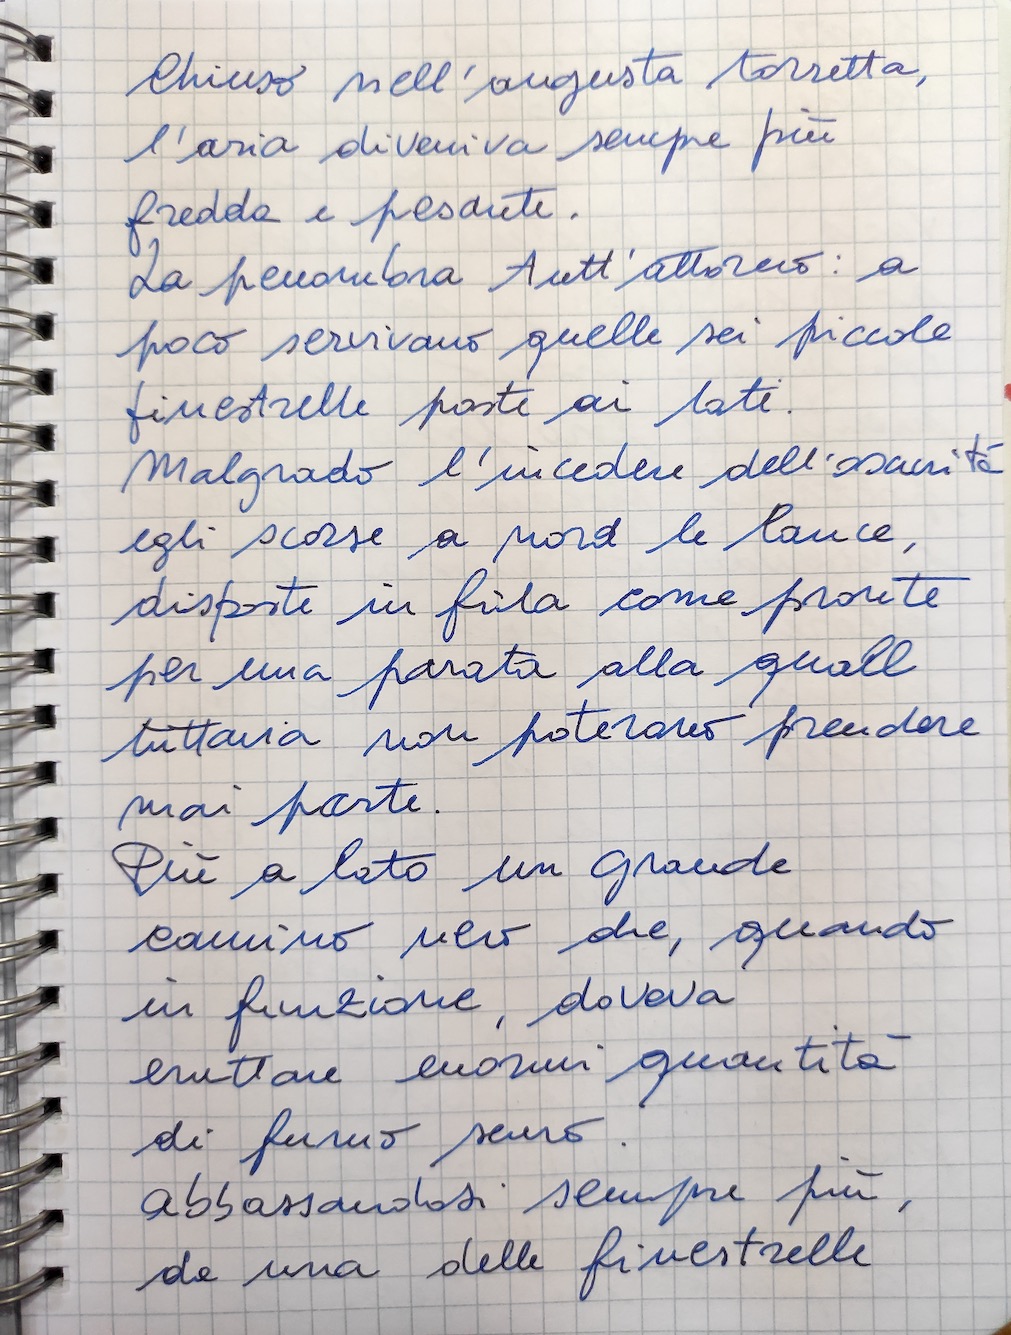 Chiuso nell'angusta torretta,
l'aria diveniva sempre più
fredda e pesante.
La penombra tutt'attorno: a
poco servivano quelle sei piccole
finestrelle poste ai lati.
Malgrado l'incedere dell'oscurità
egli scorse a nord le lance,
disposte in fila come pronte
per una parata alla quale
tuttavia non potevano prendere
mai parte.
Più a lato un grande
camino nero che, quando
in funzione, doveva
eruttare enormi quantità
di fumo scuro.
Abbassandosi sempre più,
da una delle finestrelle